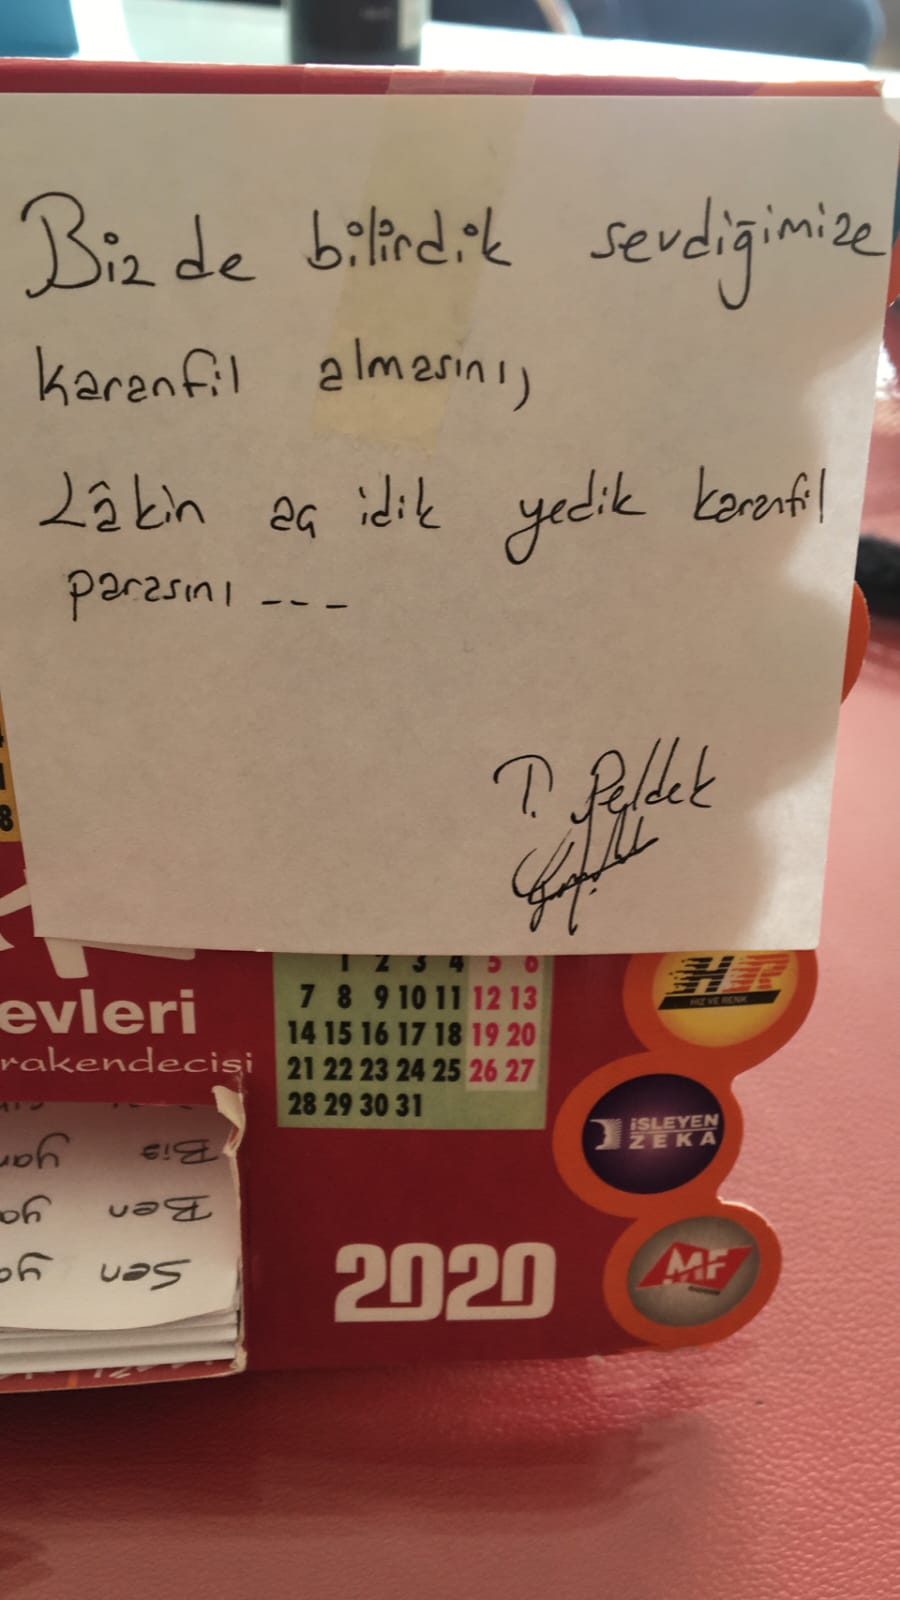 Biz de bilirdik sevdiğimize
karanfil almasını,
Lâkin aç idik yedik karanfil
parasını ---
T. Peldek
evleri
rakendecisi
1 2 3 4 5 6
7 8 9 10 11 12 13
14 15 16 17 18 19 20
21 22 23 24 25 26 27
28 29 30 31
2020
HIZ VE RENK
İŞLEYEN
ZEKA
MF
Biz
Ben
Sen
8